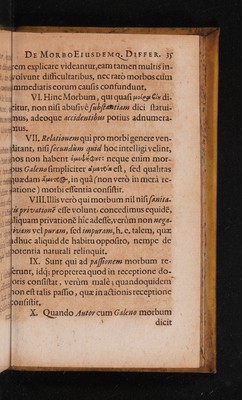 DE MORBO EIUSDEMQ. DIFFER. 35
rem explicare videantur, eam tamen multis in-
volvunt difficultatibus, nec rarò morbos cum
immediatis eorum causis confundunt.
VI. Hinc Morbum, qui quasi di-
citur, non nisi abusivè substantiam dici statui-
mus, adeoque accidentibus potius adnumera-
mus.
VII. Relationem qui pro morbi genere ven-
ditant, nisi secundum quid hoc intelligi velint,
nos non habent neque enim mor-
bus Galeno simpliciter est, sed qualitas
quædam in quâ (non verò in merâ re-
latione) morbi essentia consistit.
VIII. Illis verò qui morbum nil nisi sanita-
tis privationē esse volunt, concedimus equidē,
aliquam privationē hîc adesse, verùm non nega-
tivam vel puram, sed impuram, h. e. talem, quæ
adhuc aliquid de habitu opposito, nempe de
potentia naturali relinquit.
IX. Sunt qui ad passionem morbum re-
ferunt, idq; propterea quod in receptione do-
loris consistat, verùm malè; quandoquidem
non est talis passio, quæ in actionis receptione
consistit.
X. Quando Autor cum Galeno morbum
dicit